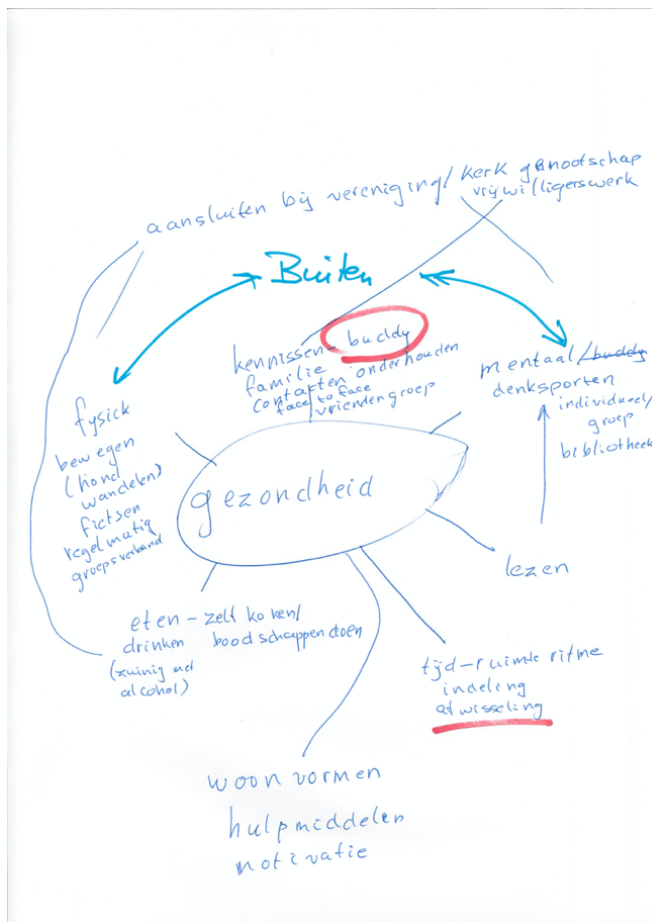 aansluiten bij vereniging/kerk genootschap
vrijwilligerswerk
Buiten
kennissen - buddy
familie
contacten onderhouden
face to face
vriendengroep
mentaal/buddy
denksporten
individueel/
groep
bibliotheek
fysiek
bewegen
(hond
wandelen)
fietsen
regelmatig
groepsverband
gezondheid
lezen
eten - zelf koken/
drinken boodschappen doen
(zuinig met
alcohol)
tijd-ruimte ritme
indeling
afwisseling
woonvormen
hulpmiddelen
motivatie